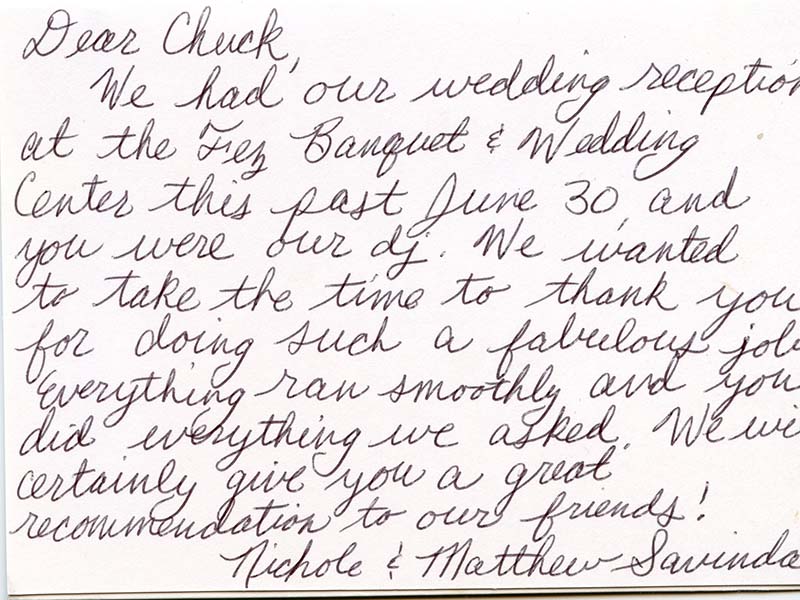 Dear Chuck,
We had our wedding reception
at the Fez Banquet & Wedding
Center this past June 30, and
you were our dj. We wanted
to take the time to thank you
for doing such a fabulous job
Everything ran smoothly and you
did everything we asked. We wi
certainly give you a great
recommendation to our friends!
Nichole & Matthew Savinda